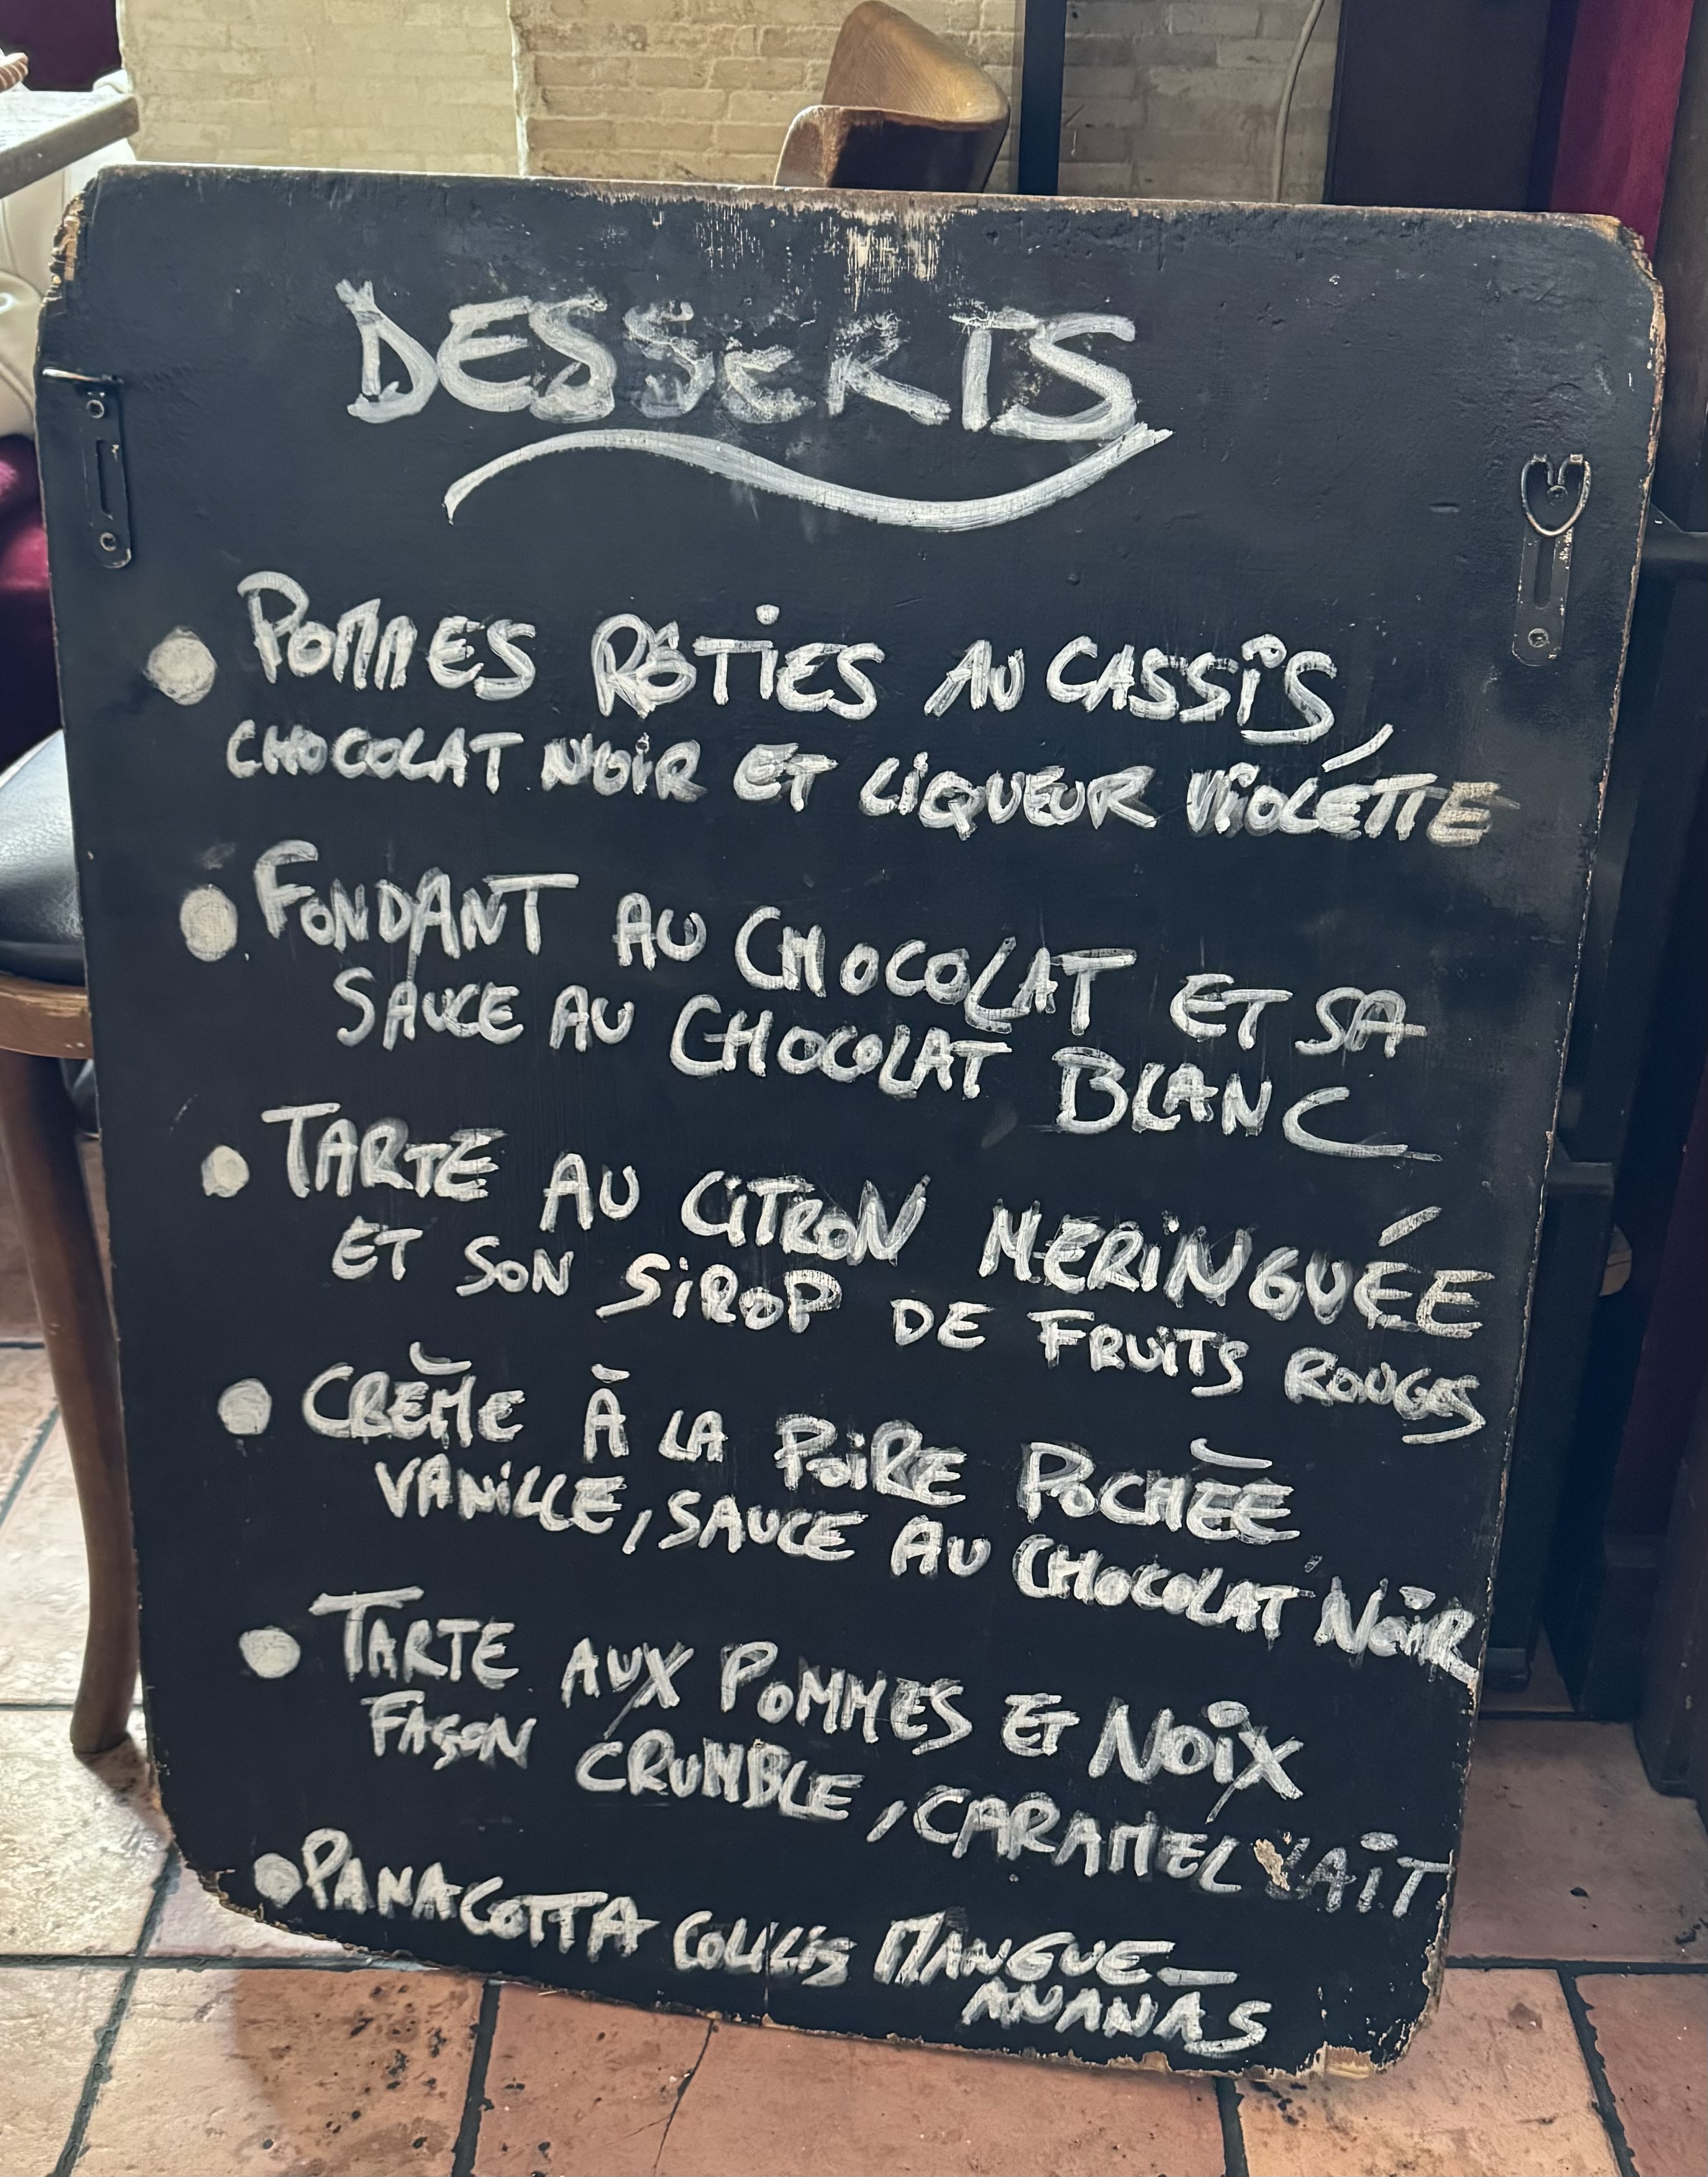 DESSERTS
POMMES RÔTIES AU CASSIS,
CHOCOLAT NOIR ET LIQUEUR VIOLETTE
FONDANT AU CHOCOLAT ET SA
SAUCE AU CHOCOLAT BLANC
TARTE AU CITRON MERINGUÉE
ET SON SIROP DE FRUITS ROUGES
CRÈME À LA POIRE POCHÉE
VANILLE, SAUCE AU CHOCOLAT NOIR
TARTE AUX POMMES ET NOIX
FAÇON CRUMBLE, CARAMEL LAIT
PANACOTTA COULIS MANGUE-
ANANAS